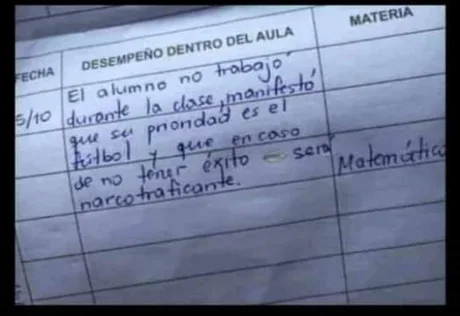 FECHA DESEMPEÑO DENTRO DEL AULA MATERIA
5/10 El alumno no trabajó
durante la clase, manifestó
que su prioridad es el
fútbol y que en caso
de no tener éxito será Matemática
narcotraficante.